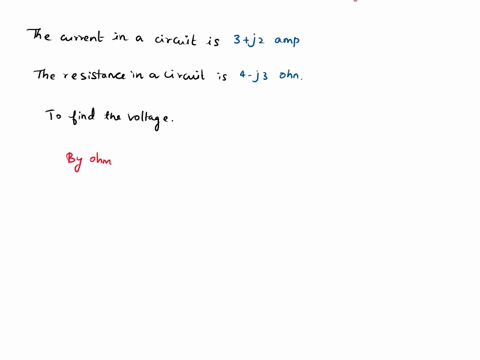 The current in a circuit is 3+j2 amp
The resistance in a circuit is 4-j3 ohn.
To find the voltage.
By ohm